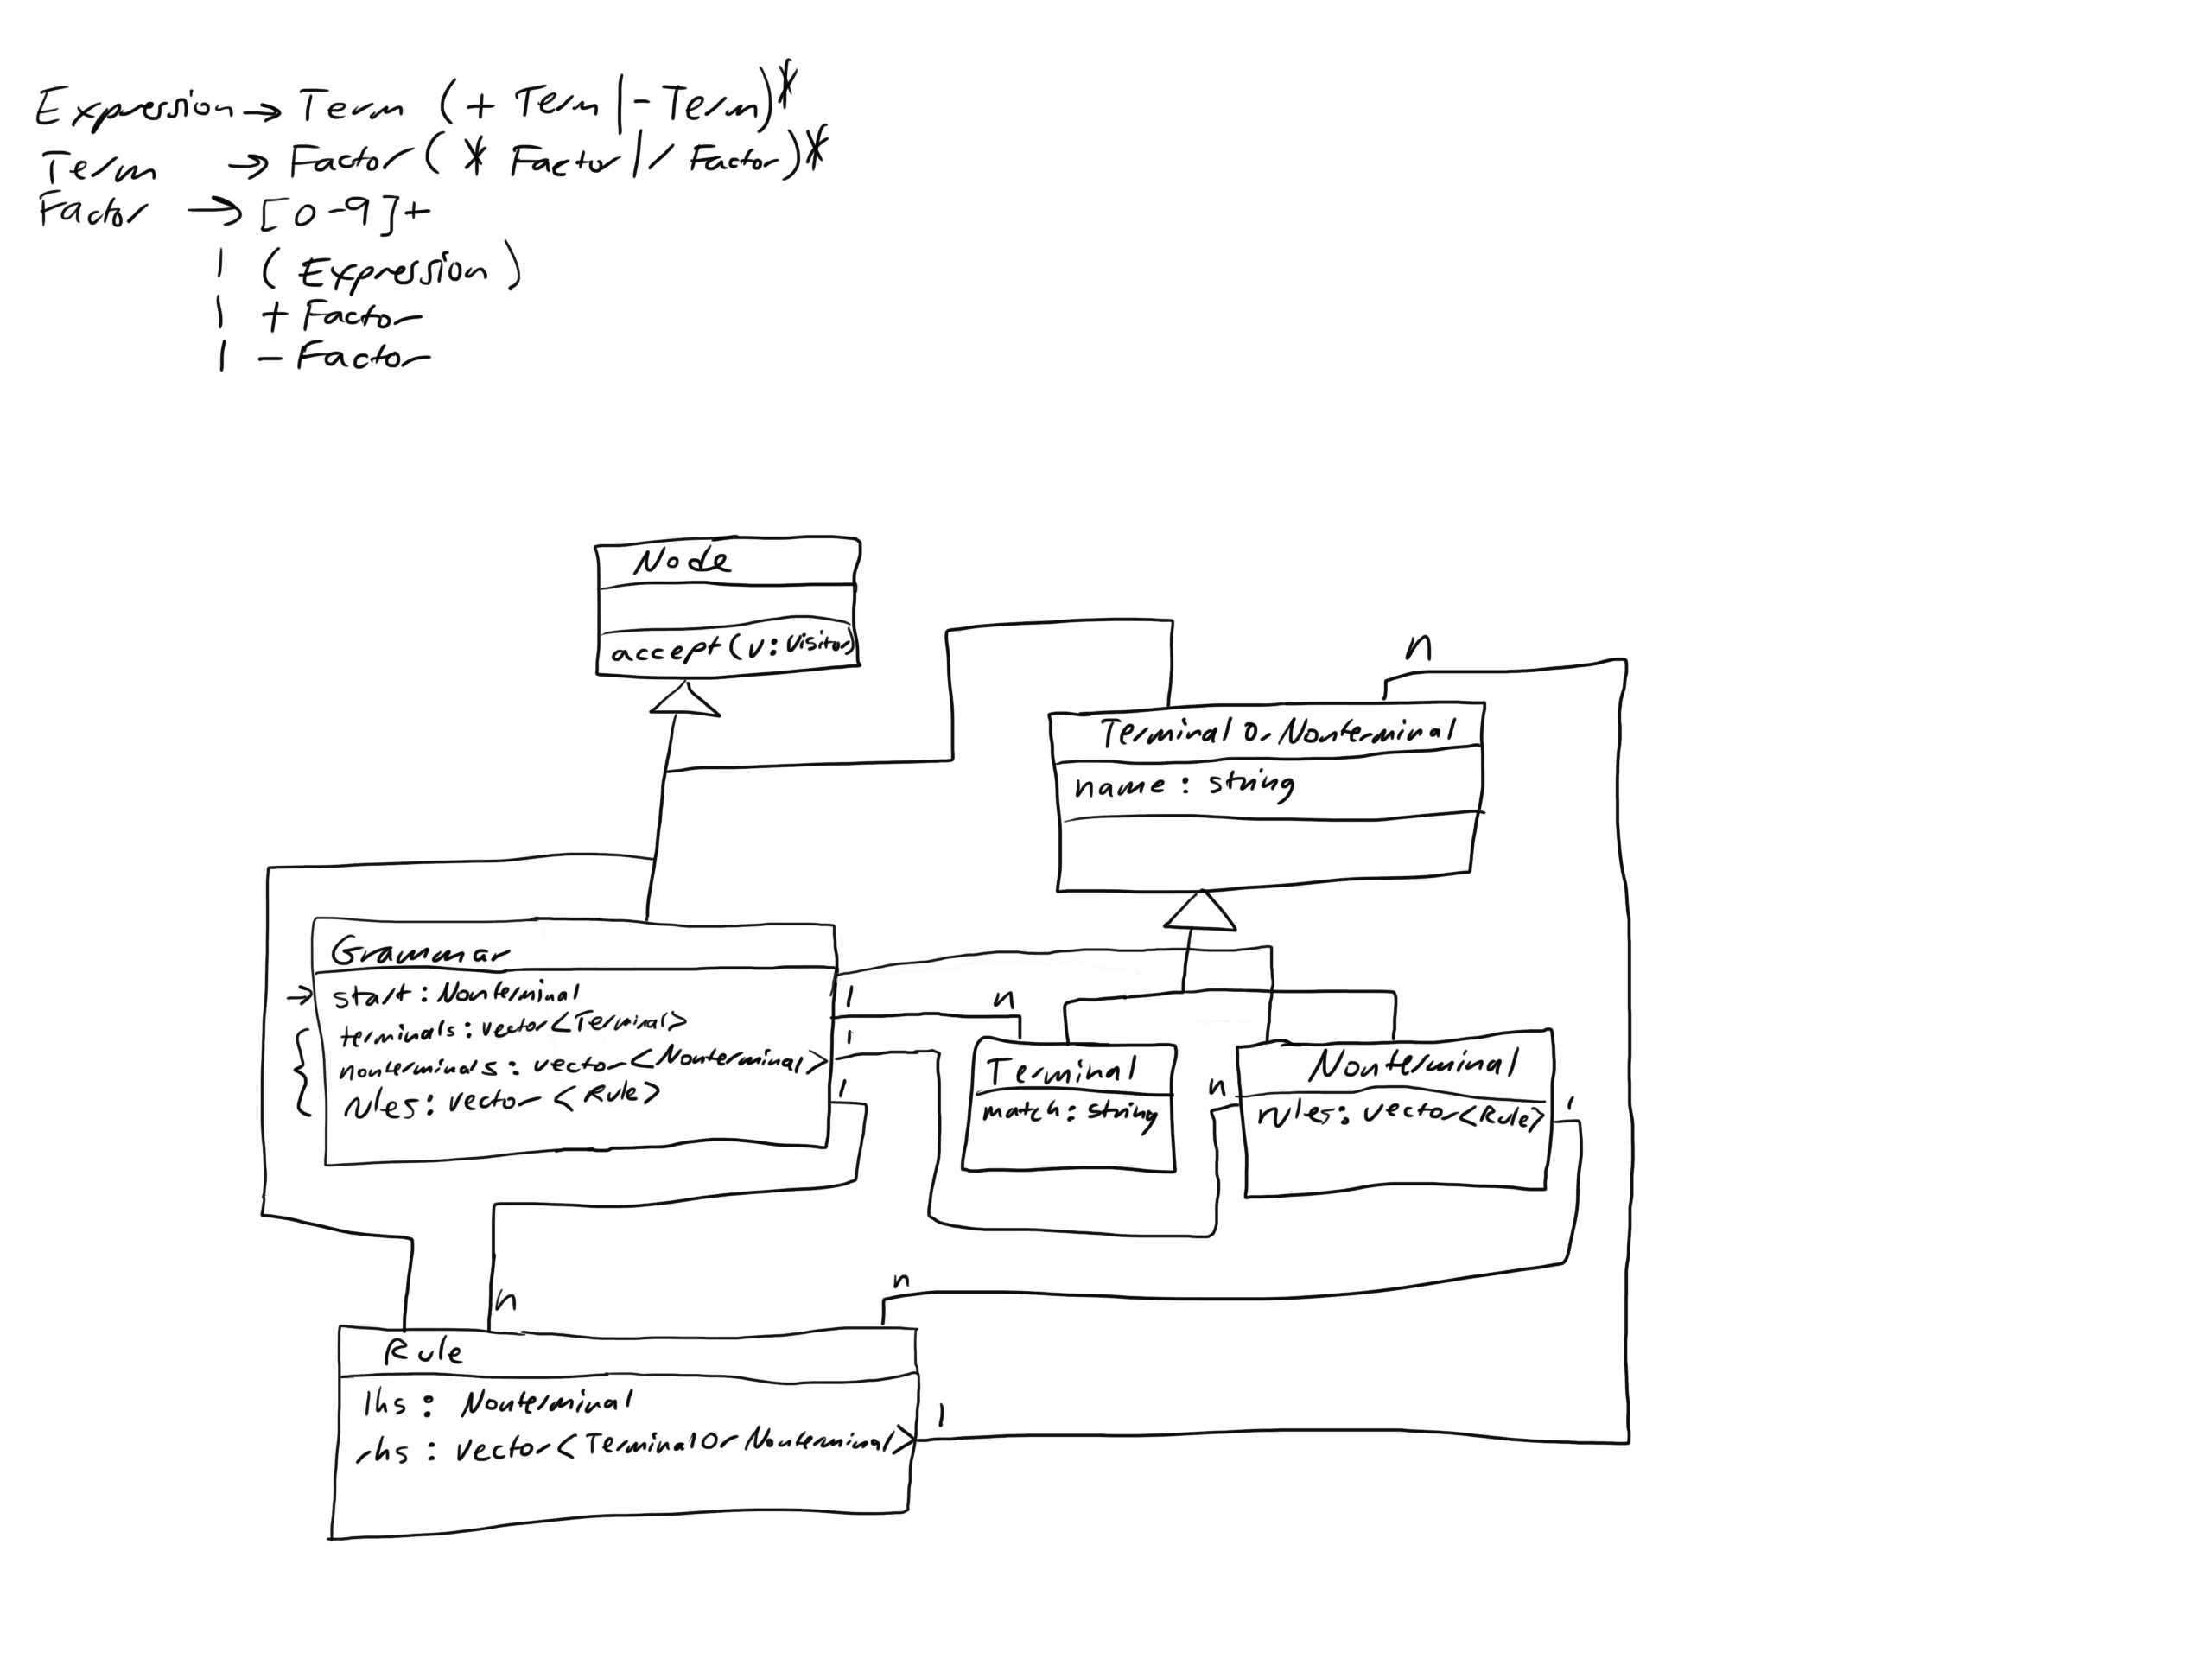 Expression → Term (+ Term | - Term)*
Term → Factor (* Factor | / Factor)*
Factor → [0-9]+
| (Expression)
| + Factor
| - Factor
Node
accept(v: Visitor)
n
TerminalOrNonterminal
name: string
Grammar
→ start: Nonterminal
{ terminals: vector<Terminal>
nonterminals: vector<Nonterminal>
rules: vector<Rule>
1
n
1
1
Terminal
match: string
n
Nonterminal
rules: vector<Rule>
1
n
n
Rule
lhs: Nonterminal
rhs: vector<TerminalOrNonterminal>
1